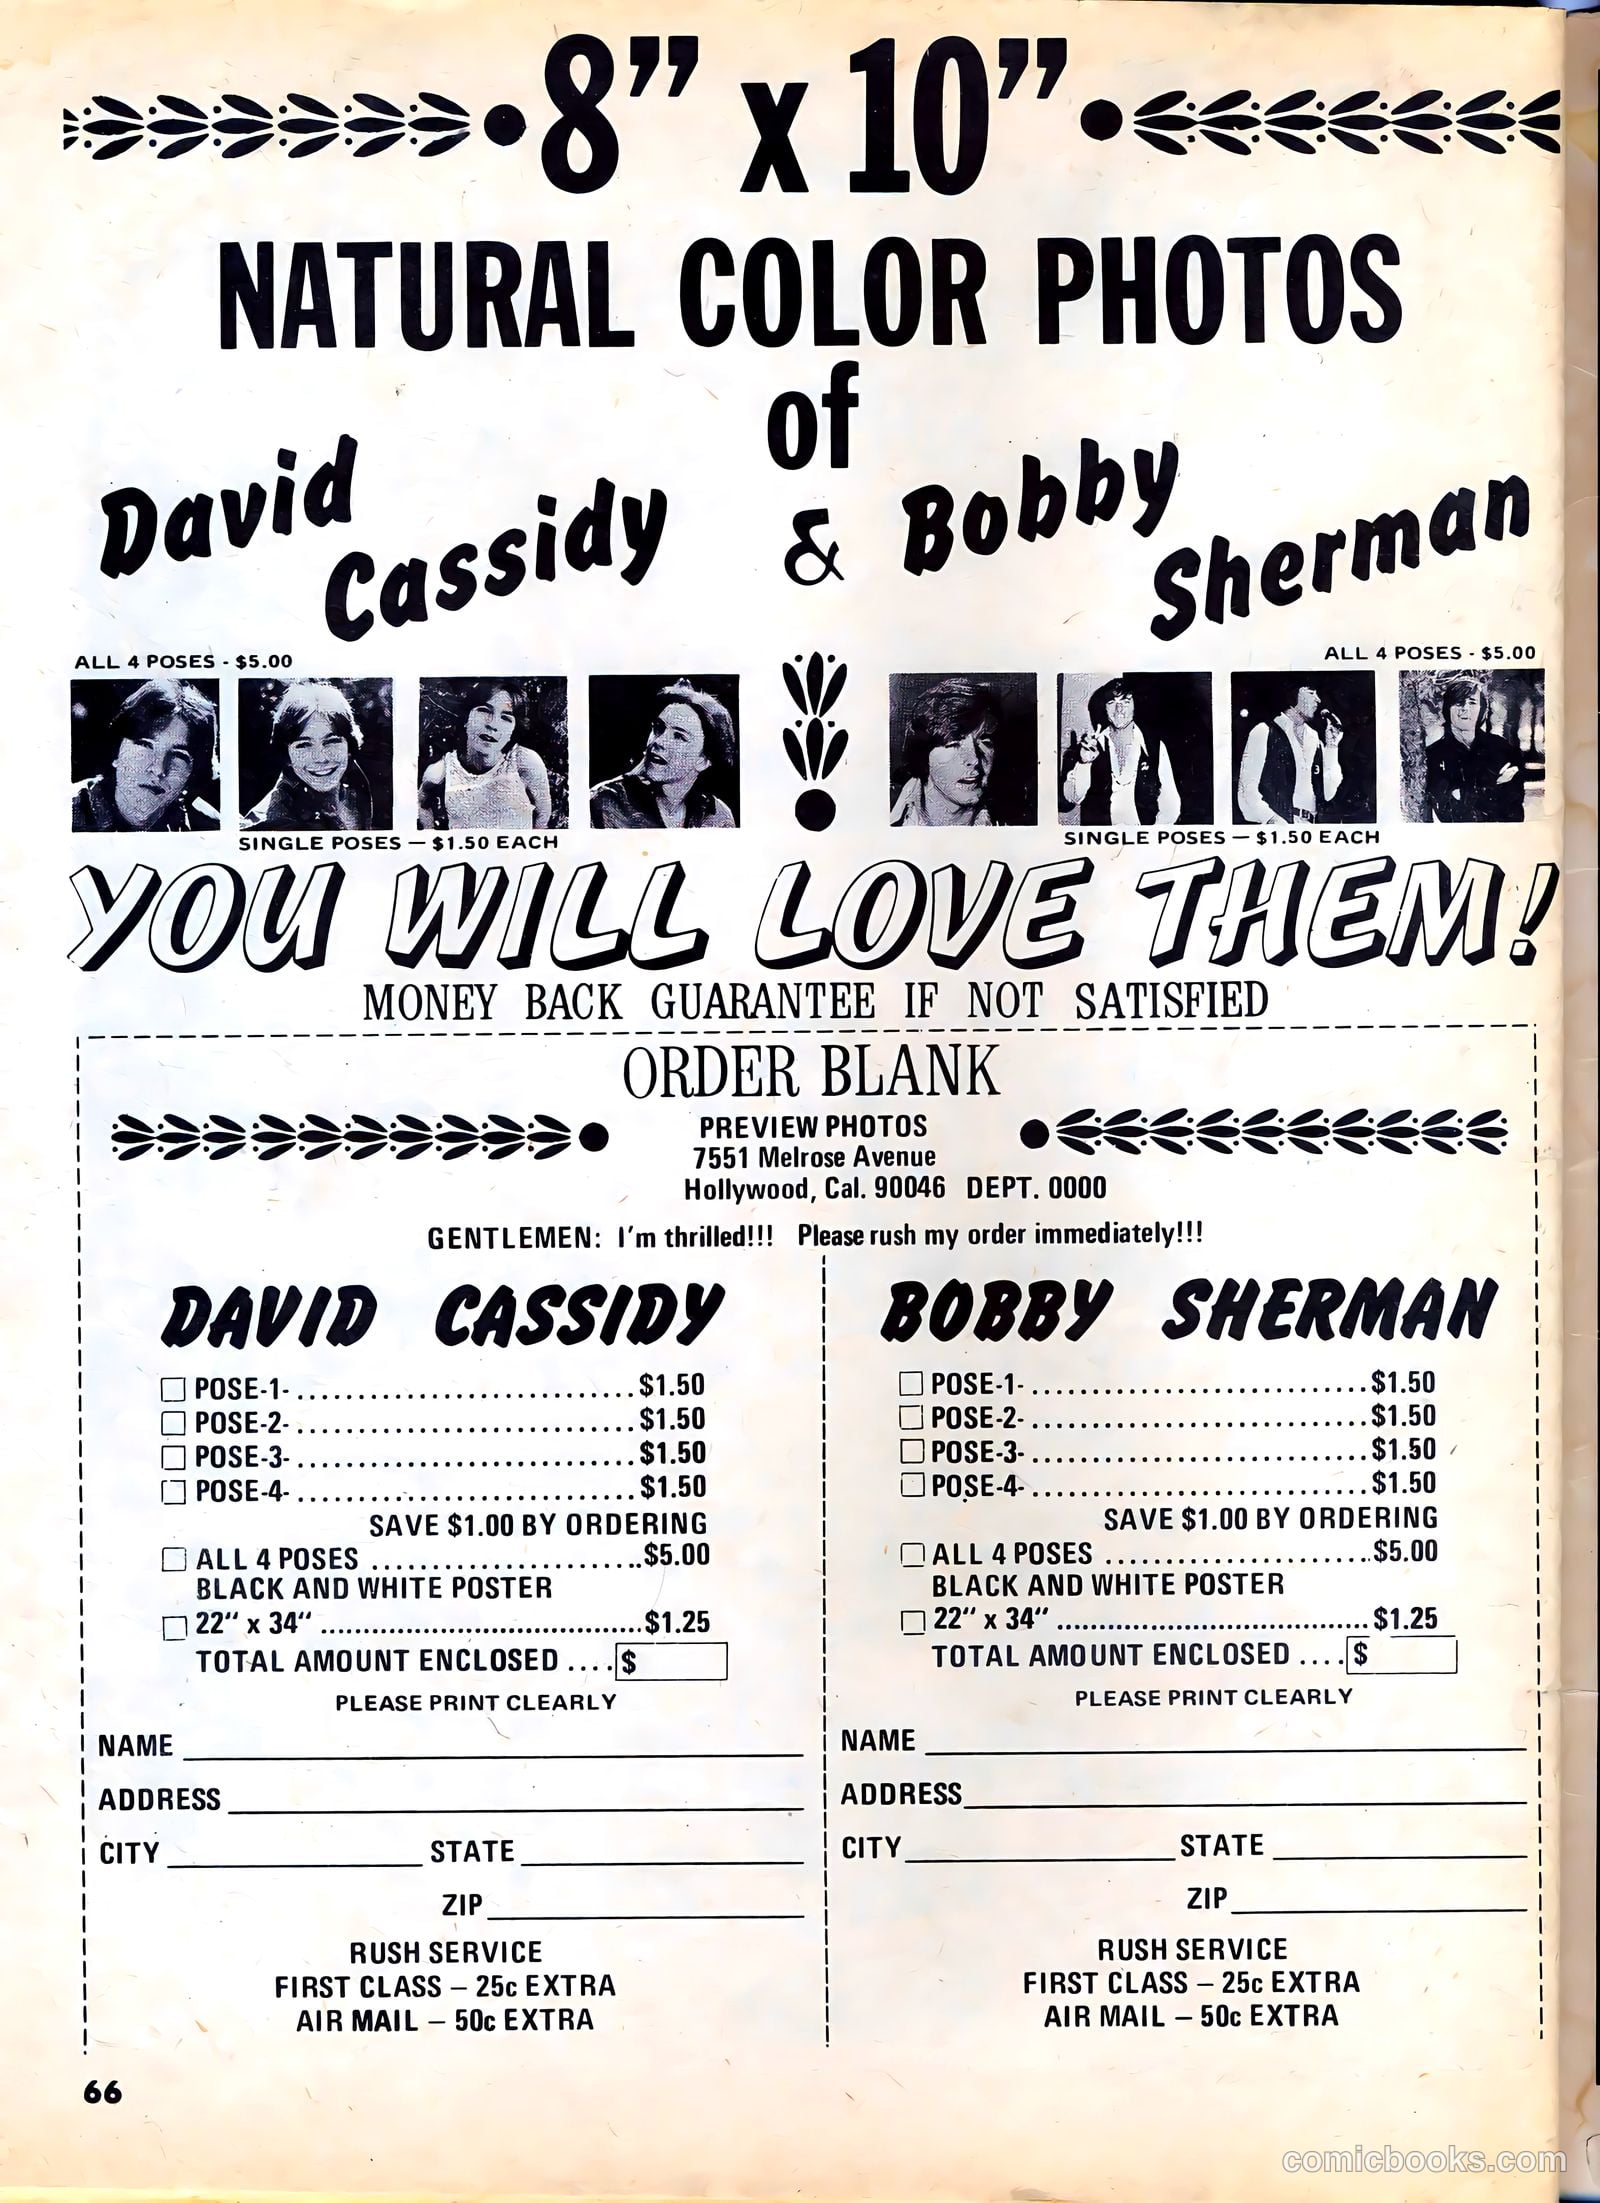 8” x 10”
NATURAL COLOR PHOTOS
of
David Cassidy & Bobby Sherman
ALL 4 POSES - $5.00
ALL 4 POSES - $5.00
SINGLE POSES — $1.50 EACH
SINGLE POSES — $1.50 EACH
YOU WILL LOVE THEM!
MONEY BACK GUARANTEE IF NOT SATISFIED
ORDER BLANK
PREVIEW PHOTOS
7551 Melrose Avenue
Hollywood, Cal. 90046 DEPT. 0000
GENTLEMEN: I'm thrilled!!! Please rush my order immediately!!!
DAVID CASSIDY
POSE-1-............................$1.50
POSE-2-............................$1.50
POSE-3-............................$1.50
POSE-4-............................$1.50
SAVE $1.00 BY ORDERING
ALL 4 POSES .......................$5.00
BLACK AND WHITE POSTER
22" x 34" .......................................$1.25
TOTAL AMOUNT ENCLOSED ....$
PLEASE PRINT CLEARLY
NAME
ADDRESS
CITY STATE
ZIP
RUSH SERVICE
FIRST CLASS — 25c EXTRA
AIR MAIL — 50c EXTRA
BOBBY SHERMAN
POSE-1-............................$1.50
POSE-2-............................$1.50
POSE-3-............................$1.50
POSE-4-............................$1.50
SAVE $1.00 BY ORDERING
ALL 4 POSES .......................$5.00
BLACK AND WHITE POSTER
22" x 34" .......................................$1.25
TOTAL AMOUNT ENCLOSED ....$
PLEASE PRINT CLEARLY
NAME
ADDRESS
CITY STATE
ZIP
RUSH SERVICE
FIRST CLASS — 25c EXTRA
AIR MAIL — 50c EXTRA
66
comicbooks.com